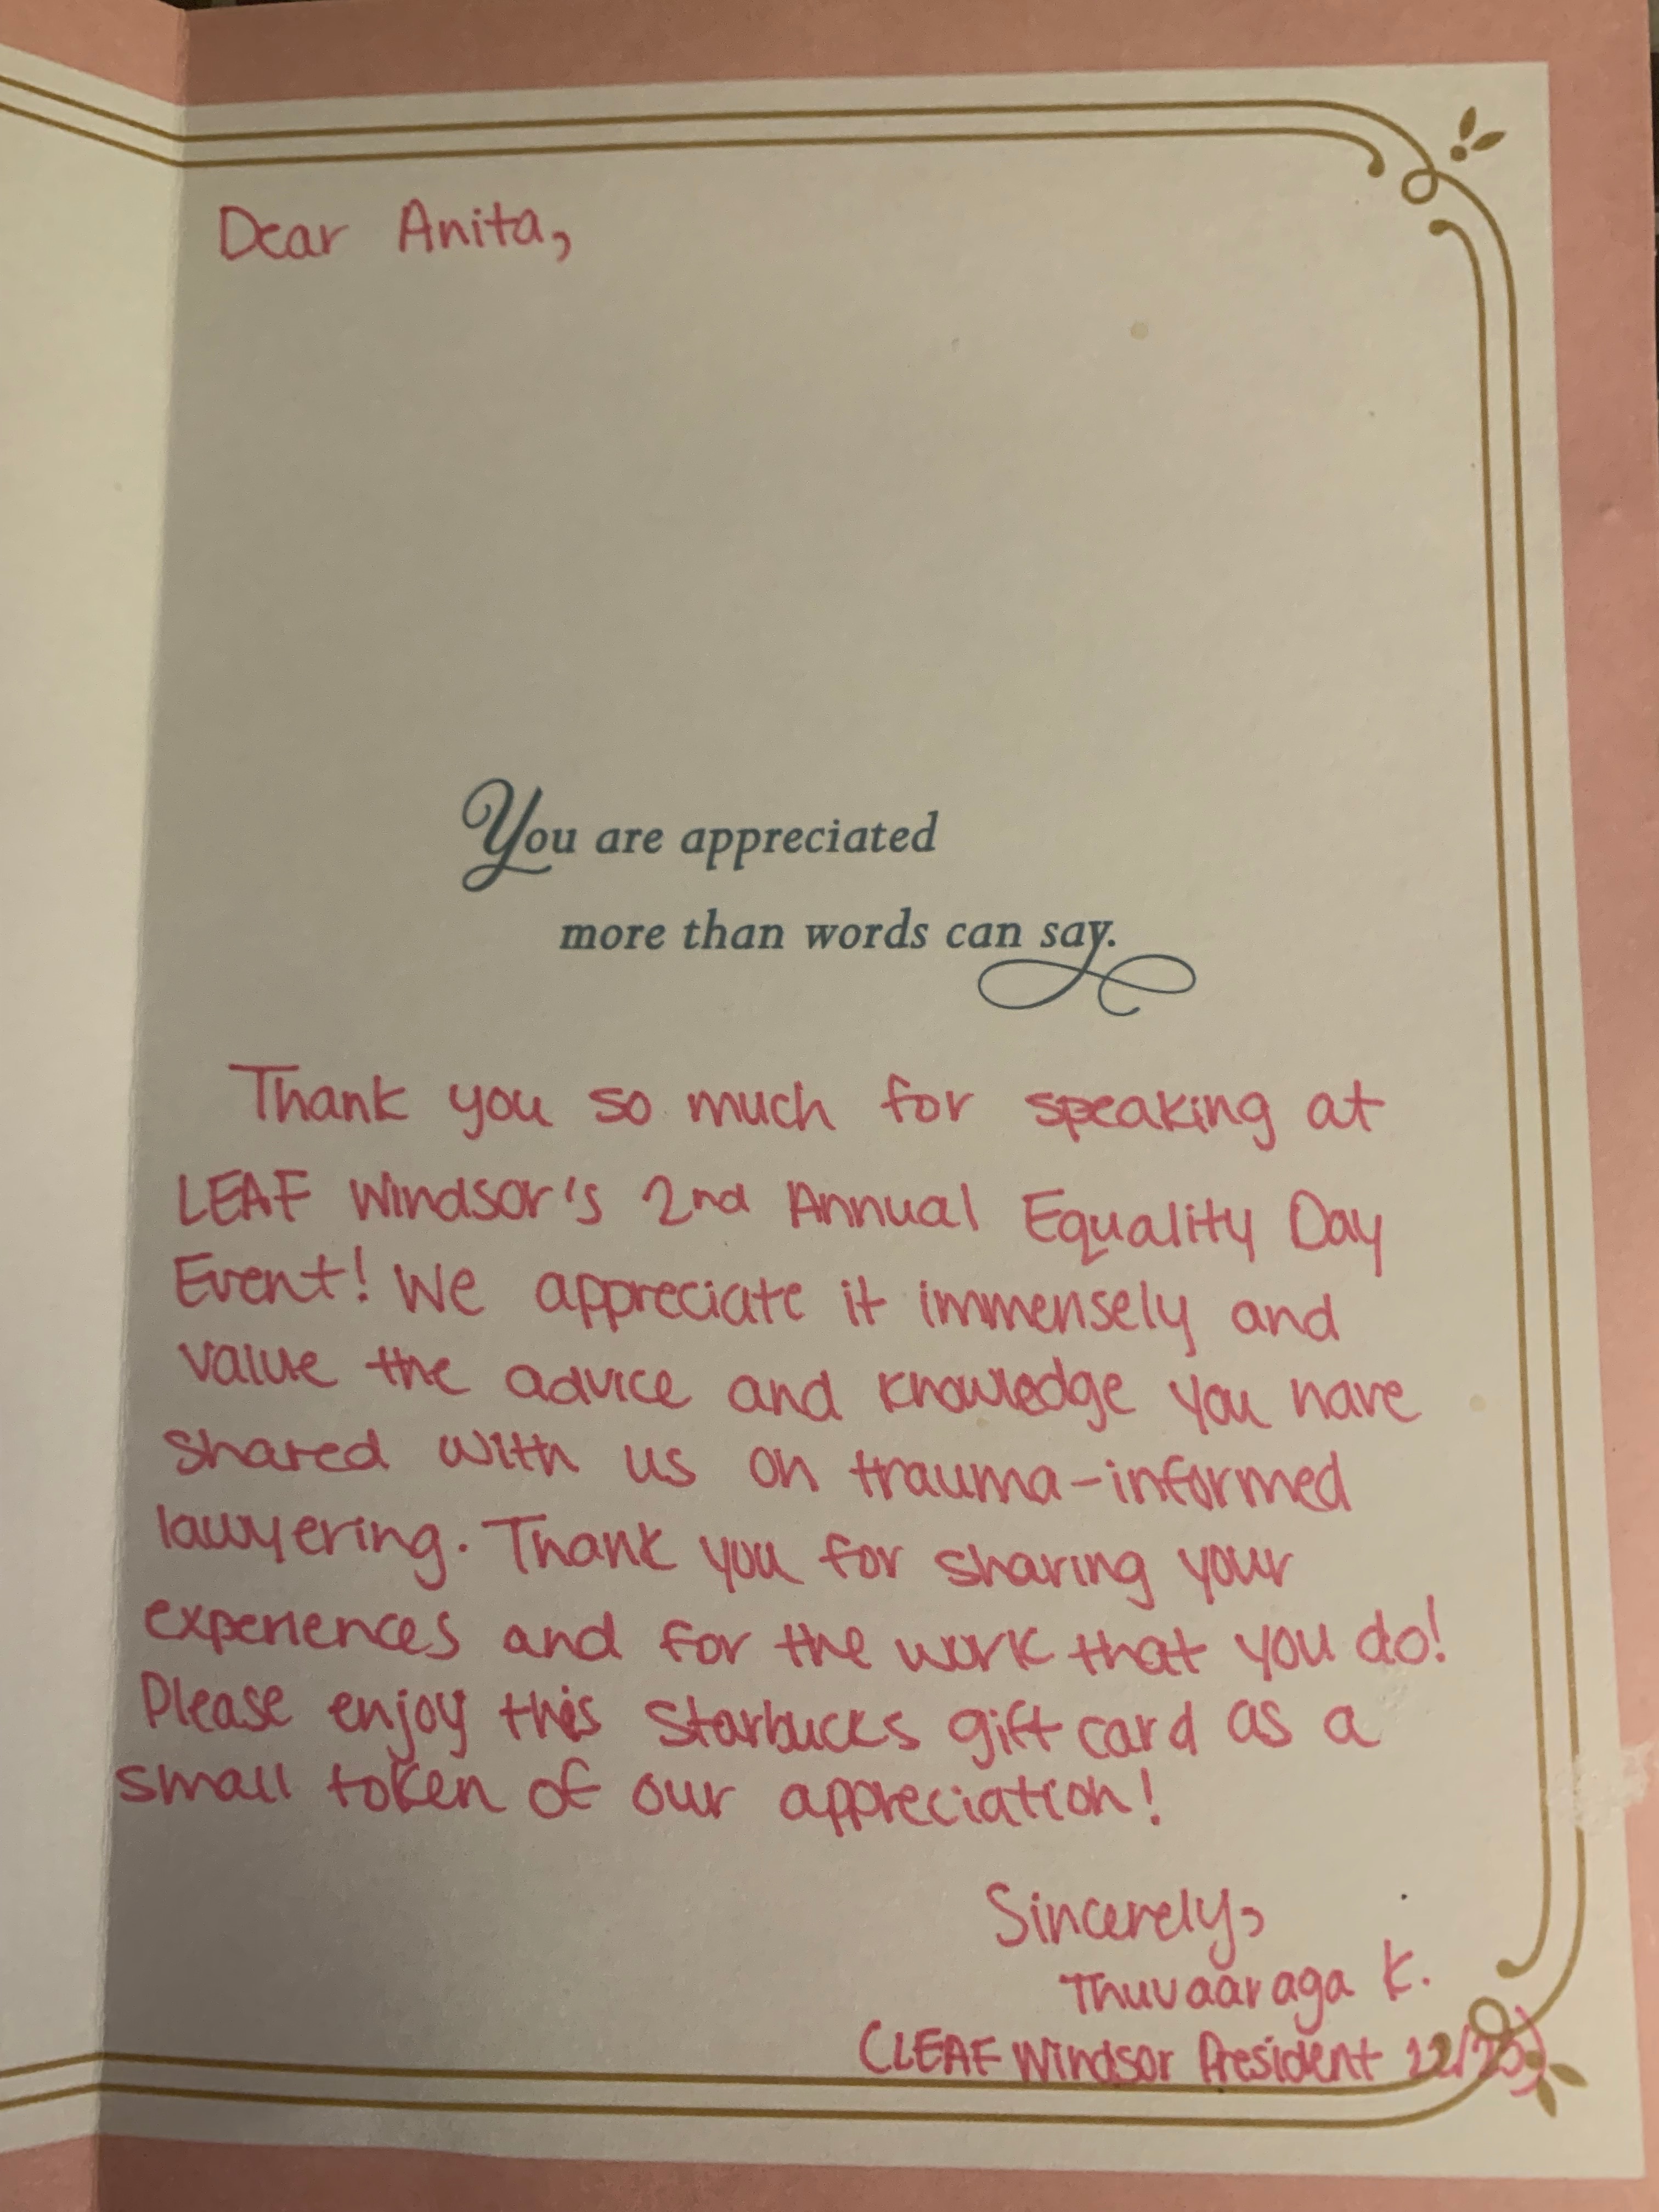 Dear Anita,
You are appreciated
more than words can say.
Thank you so much for speaking at
LEAF Windsor's 2nd Annual Equality Day
Event! We appreciate it immensely and
value the advice and knowledge you have
shared with us on trauma-informed
lawyering. Thank you for sharing your
experiences and for the work that you do!
Please enjoy this Starbucks gift card as a
small token of our appreciation!
Sincerely,
Thuvaaraga K.
(LEAF Windsor President 22/23)